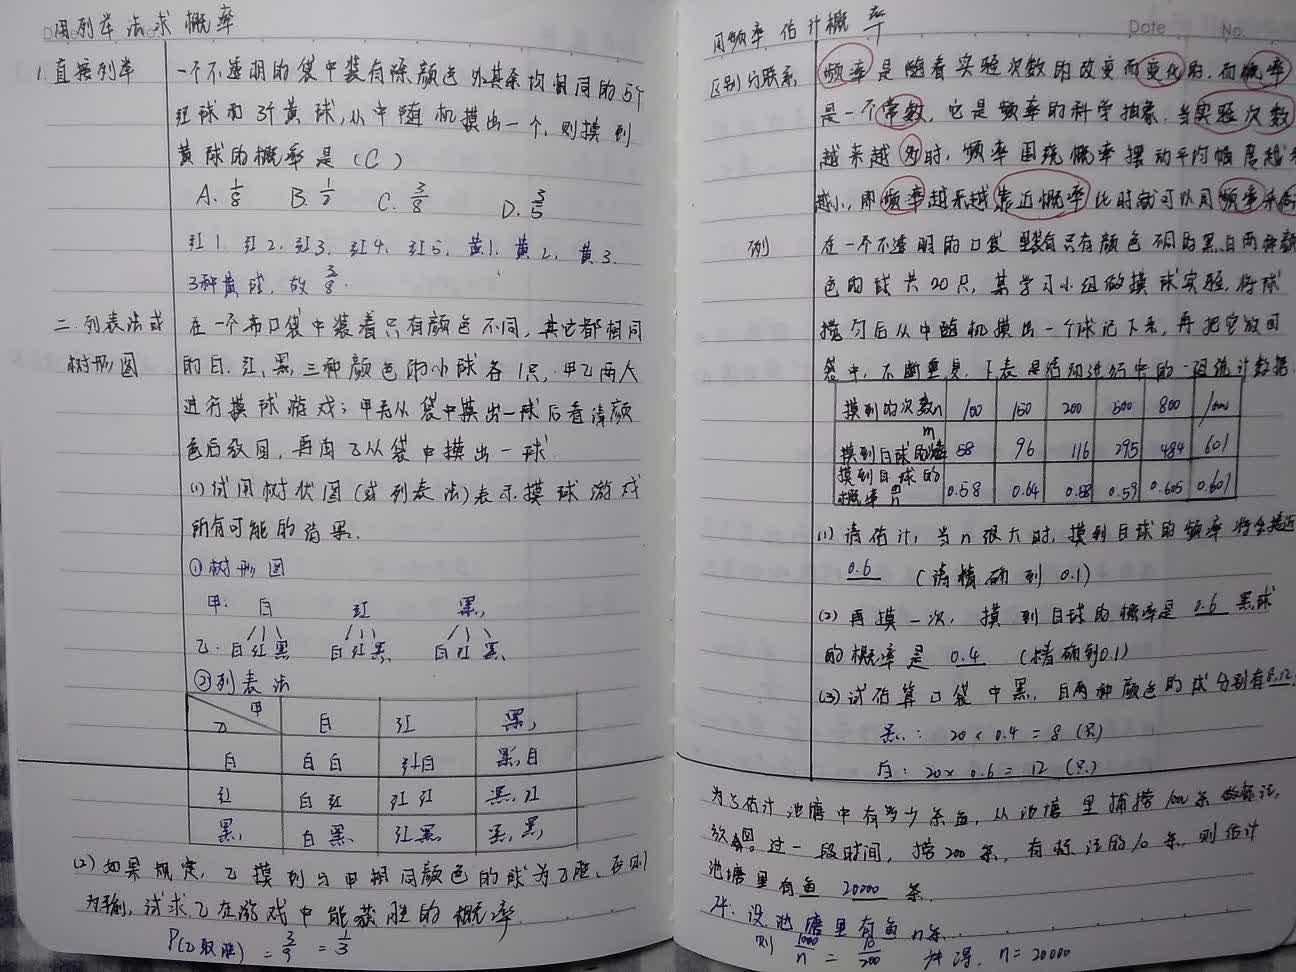 用列举法求概率
1. 直接列举
一个不透明的袋中装有除颜色外其余均相同的5个
红球和3个黄球,从中随机摸出一个,则摸到
黄球的概率是(C)
A. 1/8 B. 1/2 C. 3/8 D. 3/5
红1, 红2, 红3, 红4, 红5, 黄1, 黄2, 黄3.
3种黄球, 故 3/8.
二. 列表法或
树形图
在一个布口袋中装着只有颜色不同,其它都相同
的白、红、黑三种颜色的小球各1只,甲乙两人
进行摸球游戏;甲先从袋中摸出一球后看清颜
色后放回,再由乙从袋中摸出一球.
(1)试用树状图(或列表法)表示摸球游戏
所有可能的结果.
①树形图
甲: 白 红 黑
乙: 白红黑 白红黑 白红黑
②列表法
甲
乙 白 红 黑
白 白白 红白 黑,白
红 白红 红红 黑,红
黑 白黑 红黑 黑,黑
(2)如果规定,乙摸到与甲相同颜色的球为乙胜,否则
为输,试求乙在游戏中能获胜的概率.
P(乙取胜) = 3/9 = 1/3
用频率估计概率
Date No.
区别与联系
频率是随着实验次数的改变而变化的.而概率
是一个常数,它是频率的科学抽象.当实验次数
越来越多时,频率围绕概率摆动平均幅度越来
越小,即频率越来越靠近概率 此时就可以用频率来估
例
在一个不透明的口袋里装有只有颜色不同的黑、白两种颜
色的球共20只,某学习小组做摸球实验,将球
搅匀后从中随机摸出一个球记下来,再把它放回
袋中,不断重复.下表是活动进行中的一组统计数据.
摸到的次数n 100 150 200 500 800 1000
摸到白球的次数m 58 96 116 295 484 601
摸到白球的概率 m/n 0.58 0.64 0.58 0.59 0.605 0.601
(1)请估计,当n很大时,摸到白球的频率将会接近
0.6 (请精确到0.1)
(2)再摸一次,摸到白球的概率是 0.6 黑球
的概率是 0.4 (精确到0.1)
(3)试估算口袋中黑、白两种颜色的球分别有8,12
黑: 20×0.4=8(只)
白: 20×0.6=12(只)
为了估计池塘中有多少条鱼,从池塘里捕捞1000条做标记,
放回.过一段时间,捞200条,有标记的10条,则估计
池塘里有鱼 20000 条.
解:设池塘里有鱼n条.
则 1000/n = 10/200 解得, n=20000